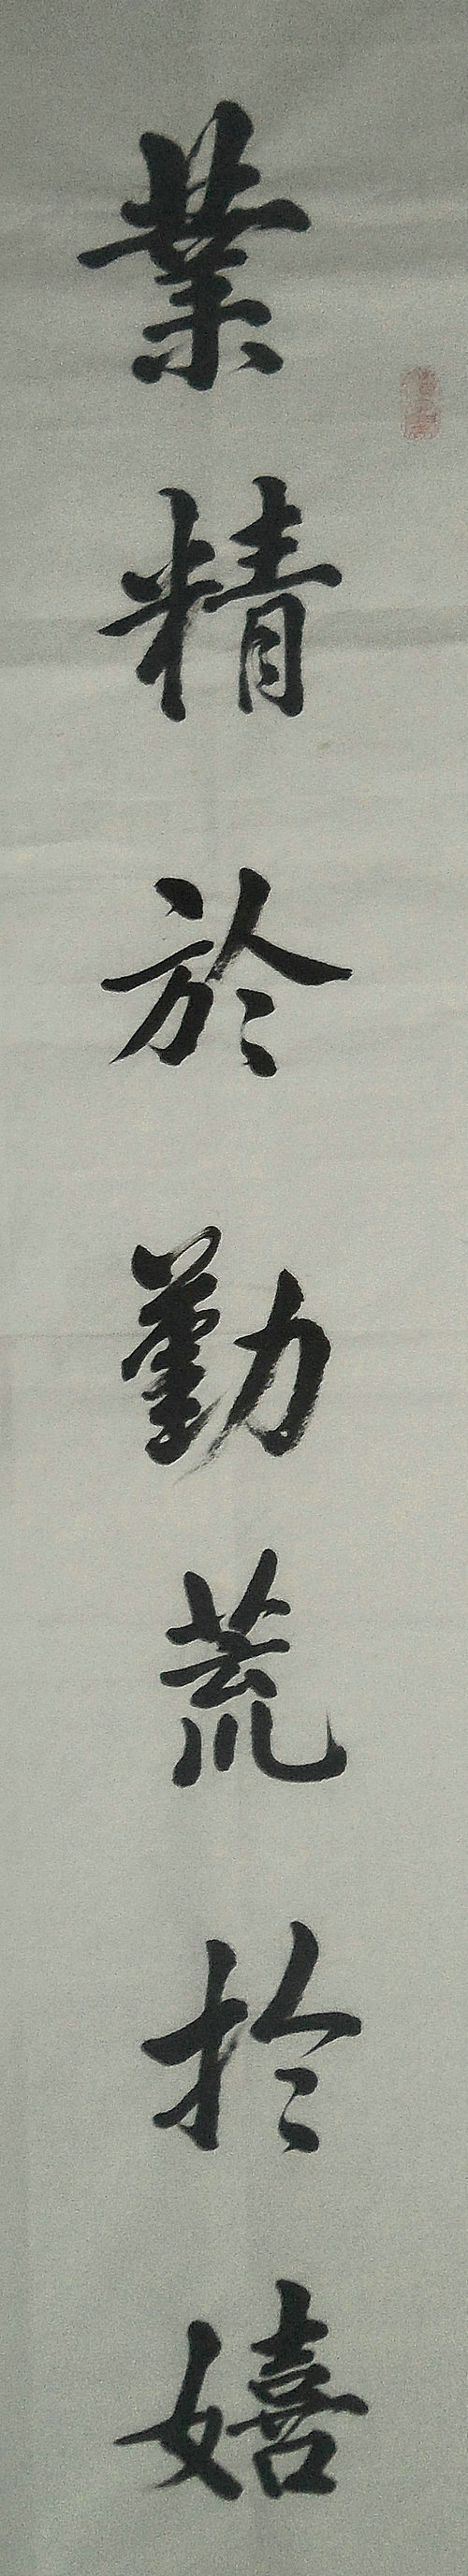 業精於勤荒於嬉